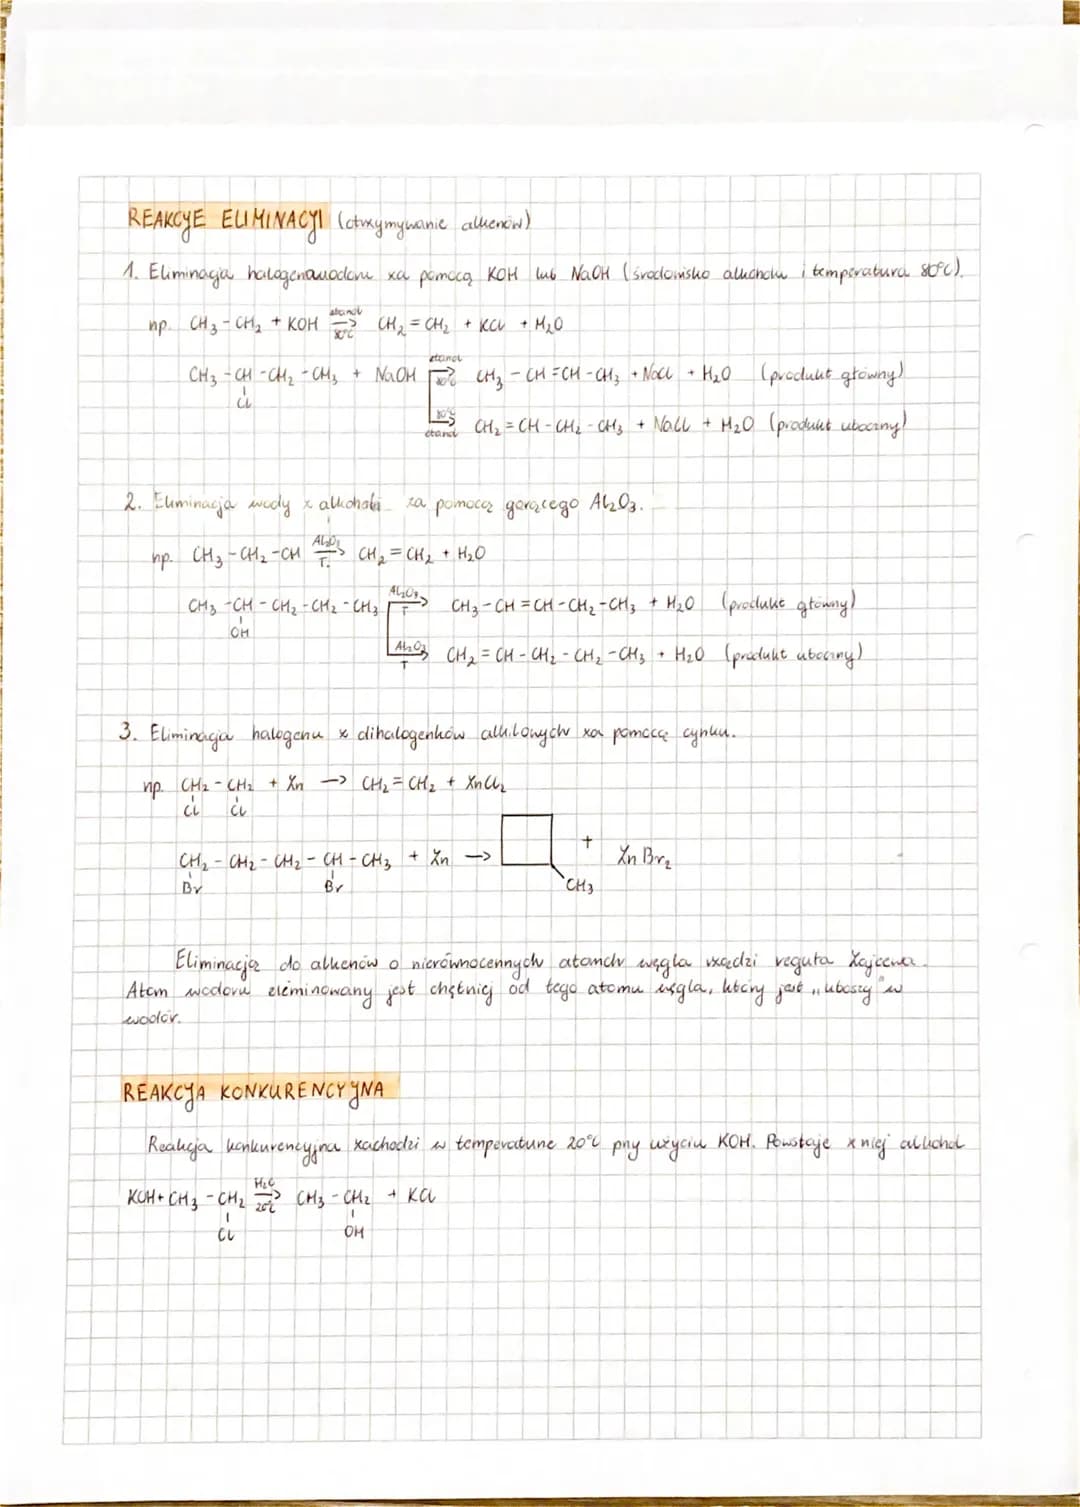 REAKCYE ELIMINACYI (otrzymywanie alkenów)
1. Eliminacja halogenowodoru za pomocą KOH lub NaOH (środowisko alkoholu i temperatura 80°C).
np. CH3 - CH2 + KOH etanol 80°C → CH2 = CH2 + KCl + H2O
CH3 - CH - CH2 - CH3 + NaOH etanol 80°C → CH3 - CH = CH - CH3 + NaCl + H2O (produkt główny)
Cl
80°C etanol → CH2 = CH - CH2 - CH3 + NaCl + H2O (produkt uboczny)
2. Eliminacja wody z alkoholi za pomocą gorącego Al2O3.
np. CH3 - CH2 - CH Al2O3 T. → CH2 = CH2 + H2O
CH3 - CH - CH2 - CH2 - CH3 Al2O3 T → CH3 - CH = CH - CH2 - CH3 + H2O (produkt główny)
OH
Al2O3 T → CH2 = CH - CH2 - CH2 - CH3 + H2O (produkt uboczny)
3. Eliminacja halogenu z dihalogenków alkilowych za pomocą cynku.
np. CH2 - CH2 + Zn → CH2 = CH2 + ZnCl2
Cl Cl
CH2 - CH2 - CH2 - CH - CH3 + Zn → + Zn Br2
Br Br CH3
Eliminacją do alkenów o nierównocennych atomach węgla rządzi reguła Zajcewa.
Atom wodoru eliminowany jest chętniej od tego atomu węgla, który jest „uboższy" w
wodór.
REAKCJA KONKURENCYJNA
Reakcja konkurencyjna zachodzi w temperaturze 20°C przy użyciu KOH. Powstaje z niej alkohol
KOH + CH3 - CH2 H2O 20°C → CH3 - CH2 + KCl
Cl OH